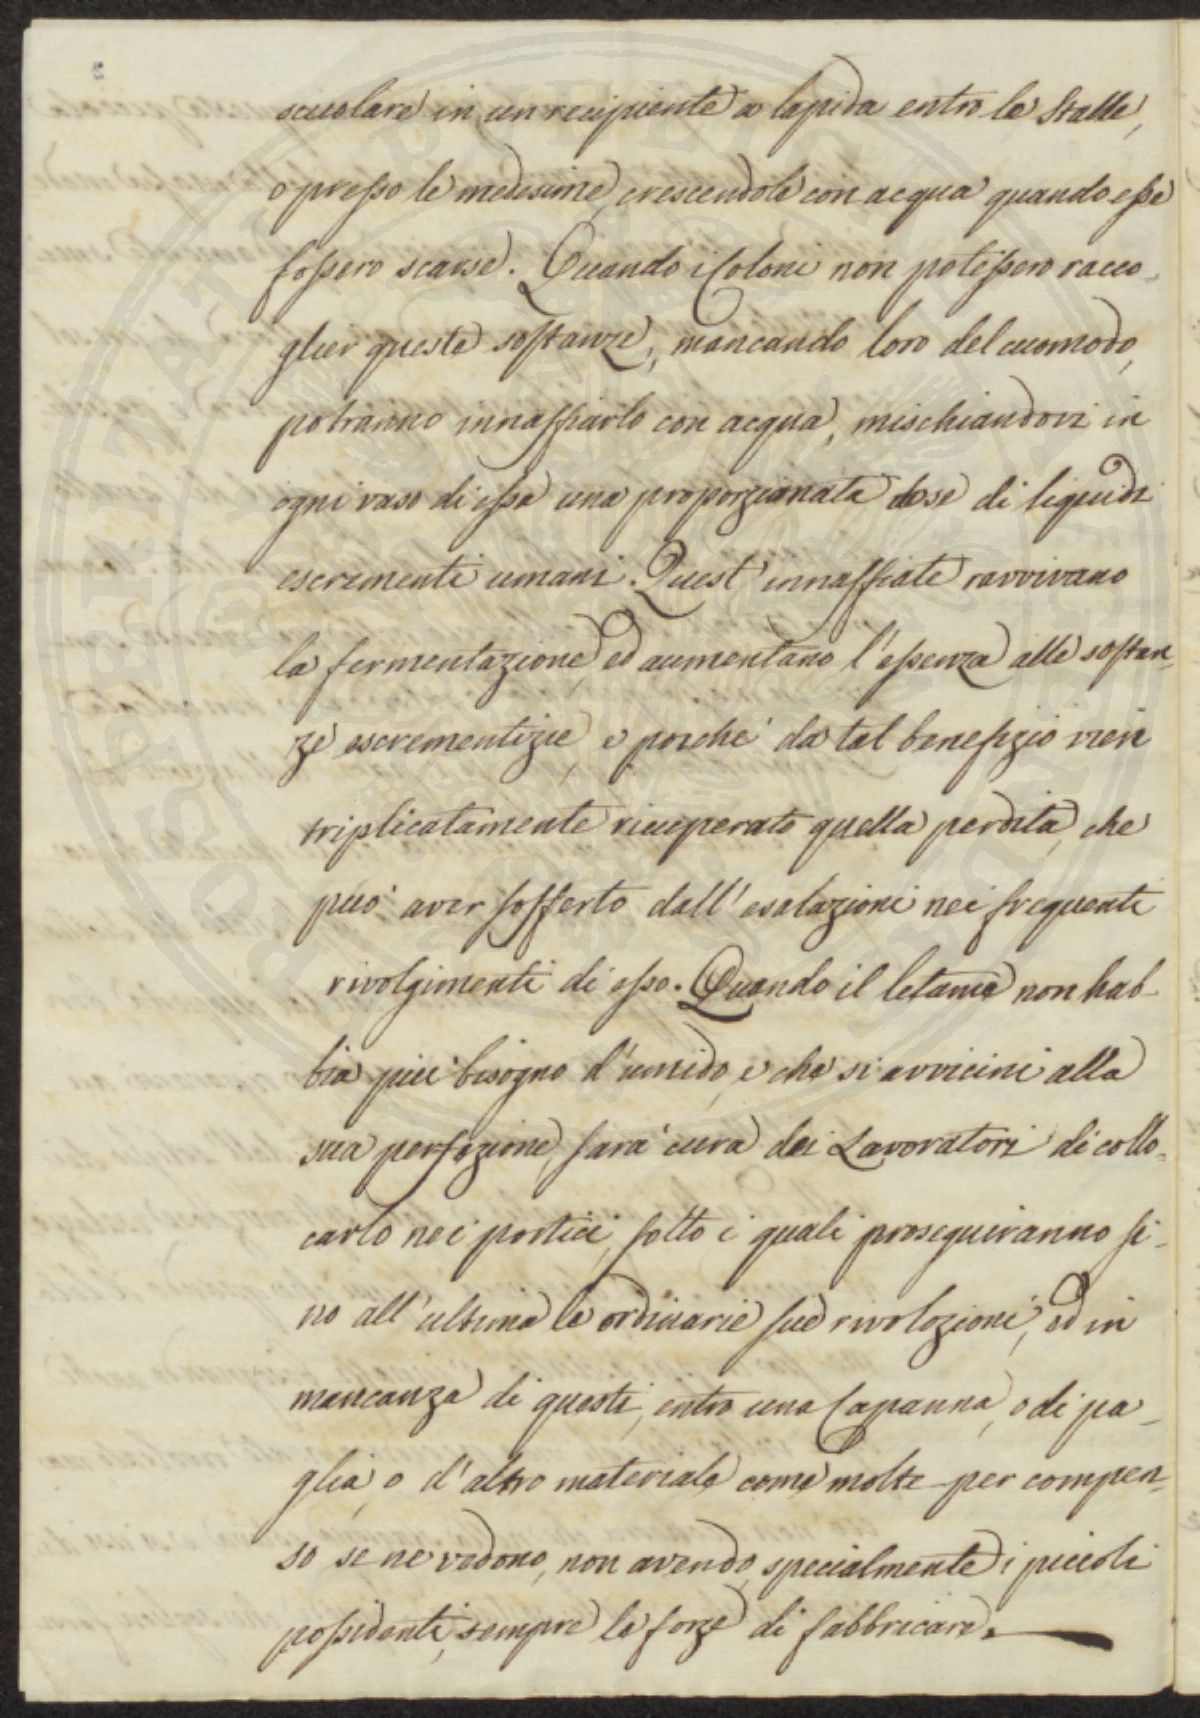 scuolare in un recipiente a lapida entro le Stalle,
o presso le medesime, crescendole con acqua quando esse
fossero scarse. Quando i Coloni non potessero racco-
glier queste sostanze, mancando loro del cuomodo,
potranno innaffiarlo con acqua, mischiandovi in
ogni vaso di essa una proporzionata dose di liquidi
escrementi umani. Quest'innaffiate ravvivano
la fermentazione, ed aumentano l'essenza alle sostan-
ze escrementizie, e poiche' da tal benefizio vien
triplicatamente ricuperato quella perdita, che
puo' aver sofferto dall'esalazioni nei frequenti
rivolgimenti di esso. Quando il letame non hab-
bia piu' bisogno d'umido, e che si avvicini alla
sua perfezione, sara' cura dei Lavoratori di collo-
carlo nei portici, sotto i quali proseguiranno fi-
no all'ultimo le ordinarie sue rivolozioni, ed in
mancanza di questi, entro una Capanna, o di pa-
glia, o d'altro materiale come molte per compen-
so se ne vedono, non avendo, specialmente i piccoli
possidenti, sempre le forze di fabbricare.